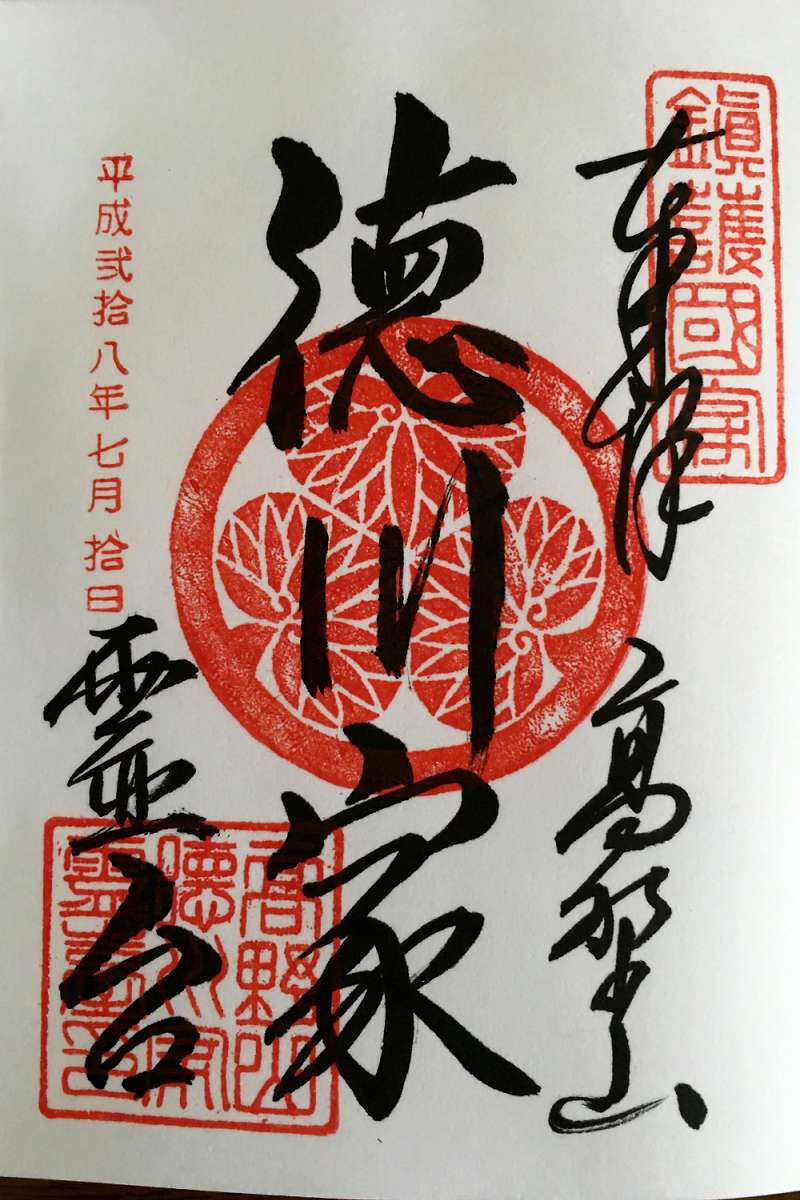 鎮護國家
奉拝
高野山
徳川家
霊台
高野山
徳川家
霊臺印
平成弐拾八年七月拾日